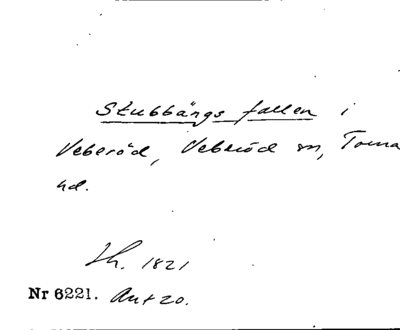 Stubbängs fallen i
Veberöd, Veberöd sn, Torna
hd.
Lh. 1821
Nr 6221. Ant 20.